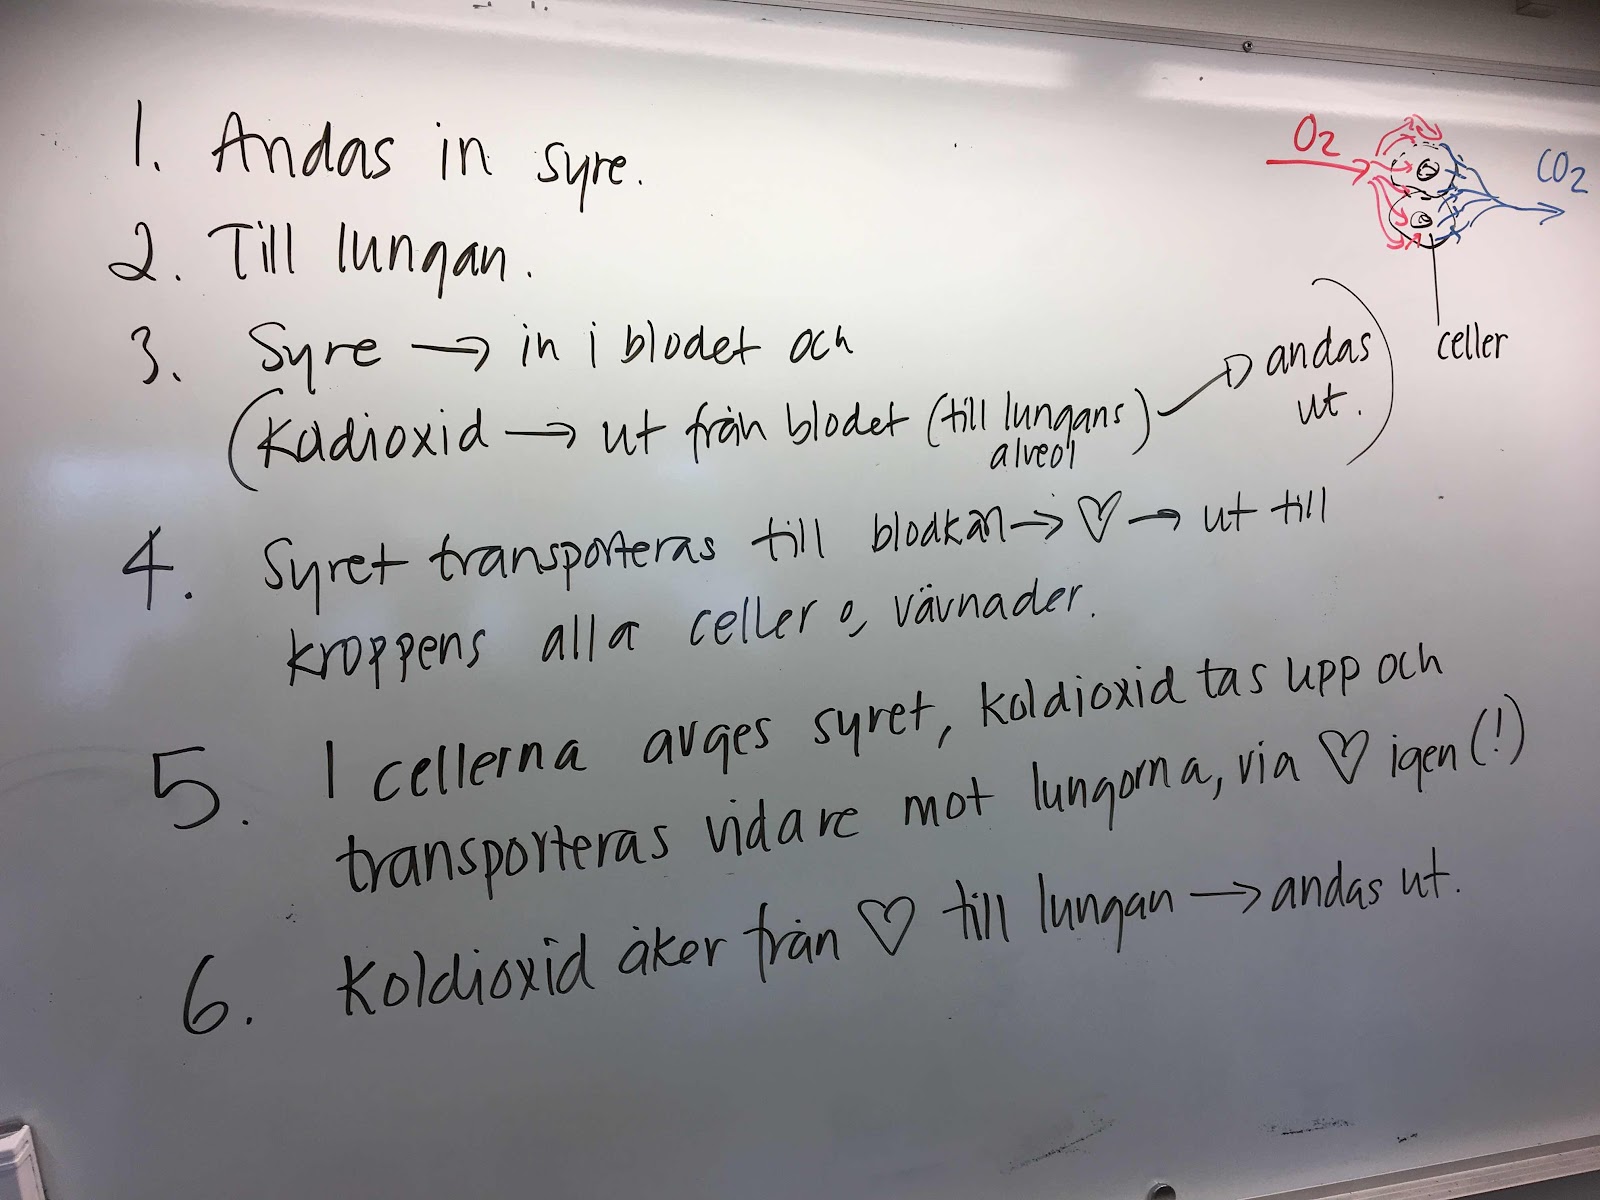 1. Andas in syre.
2. Till lungan.
3. Syre → in i blodet och
(Koldioxid → ut från blodet (till lungans alveol) → andas ut.)
4. Syret transporteras till blodkärl → ♡ → ut till
kroppens alla celler o, vävnader.
5. I cellerna avges syret, koldioxid tas upp och
transporteras vidare mot lungorna, via ♡ igen (!)
6. Koldioxid åker från ♡ till lungan → andas ut.
O2
CO2
celler